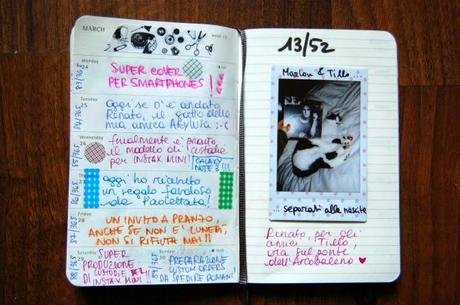 MARCH
Monday
24
SUPER COVER
PER SMARTPHONES!
Tuesday
25
Oggi se n'è andato
Renato, il gatto della
mia amica :-(
Wednesday
26
finalmente è pronto
il modello di custodie
per INSTAX MINI!
GALAXY
NOTE 3!!!
oggi ho ricevuto
un regalo favoloso
da Paolettata!
Friday
28
UN INVITO A PRANZO,
ANCHE SE NON E' LUNEDI',
NON SI RIFIUTA MAI!!
SUPER
PRODUZIONE
DI CUSTODIE X
INSTAX MINI!!
30
PREPARAZIONE
CUSTOM ORDERS
DA SPEDIRE DOMANI!
13/52
Marlon & Tillo...
... separati alla nascita
Renato, per gli
amici "Tillo",
ora sul ponte
dell'Arcobaleno ♥